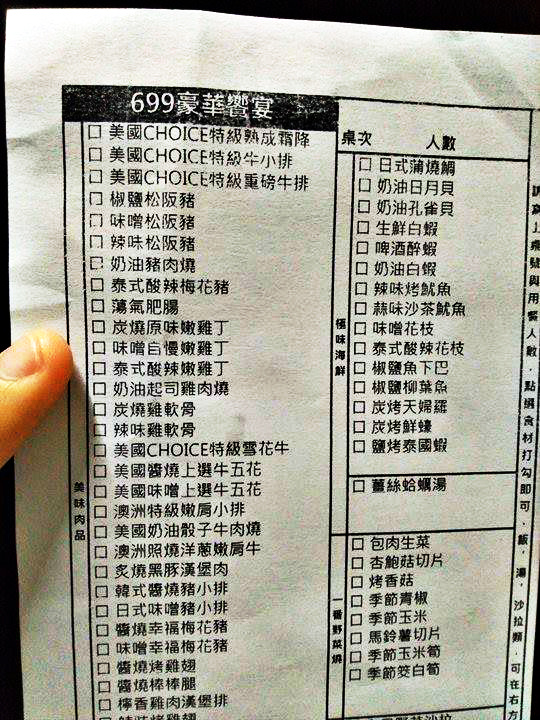 699豪華饗宴
美味肉品
□ 美國CHOICE特級熟成霜降
□ 美國CHOICE特級牛小排
□ 美國CHOICE特級重磅牛排
□ 椒鹽松阪豬
□ 味噌松阪豬
□ 辣味松阪豬
□ 奶油豬肉燒
□ 泰式酸辣梅花豬
□ 蕩氣肥腸
□ 炭燒原味嫩雞丁
□ 味噌自慢嫩雞丁
□ 泰式酸辣嫩雞丁
□ 奶油起司雞肉燒
□ 炭燒雞軟骨
□ 辣味雞軟骨
□ 美國CHOICE特級雪花牛
□ 美國醬燒上選牛五花
□ 美國味噌上選牛五花
□ 澳洲特級嫩肩小排
□ 美國奶油骰子牛肉燒
□ 澳洲照燒洋蔥嫩肩牛
□ 炙燒黑豚漢堡肉
□ 韓式醬燒豬小排
□ 日式味噌豬小排
□ 醬燒幸福梅花豬
□ 味噌幸福梅花豬
□ 醬燒烤雞翅
□ 醬燒棒棒腿
□ 檸香雞肉漢堡排
桌次 人數
極味海鮮
□ 日式蒲燒鯛
□ 奶油日月貝
□ 奶油孔雀貝
□ 生鮮白蝦
□ 啤酒醉蝦
□ 奶油白蝦
□ 辣味烤魷魚
□ 蒜味沙茶魷魚
□ 味噌花枝
□ 泰式酸辣花枝
□ 椒鹽魚下巴
□ 椒鹽柳葉魚
□ 炭烤天婦羅
□ 炭烤鮮蠔
□ 鹽烤泰國蝦
□ 薑絲蛤蠣湯
一番野菜燒
□ 包肉生菜
□ 杏鮑菇切片
□ 烤香菇
□ 季節青椒
□ 季節玉米
□ 馬鈴薯切片
□ 季節玉米筍
□ 季節筊白筍
上桌號與用餐人數，點選食材打勾即可，飯，湯，沙拉類，可在右方